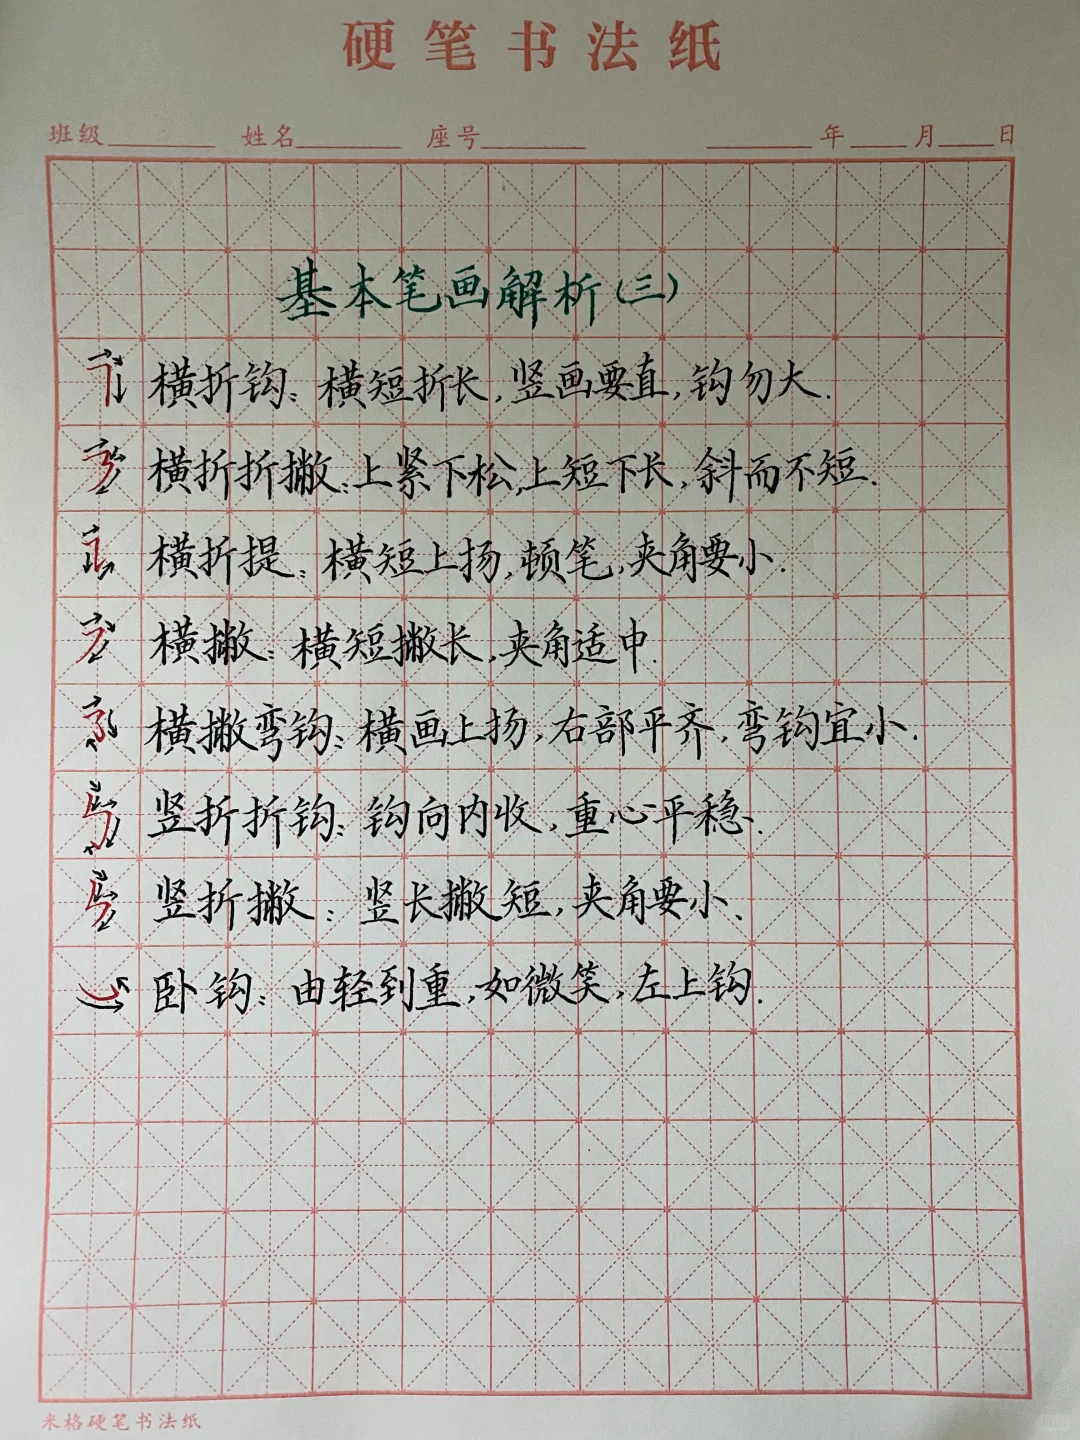 硬笔书法纸
班级 姓名 座号 年 月 日
基本笔画解析(三)
横折钩:横短折长,竖画要直,钩勿大.
横折折撇:上紧下松,上短下长,斜而不短.
横折提:横短上扬,顿笔,夹角要小.
横撇:横短撇长,夹角适中.
横撇弯钩:横画上扬,右部平齐,弯钩宜小.
竖折折钩:钩向内收,重心平稳.
竖折撇:竖长撇短,夹角要小、
卧钩:由轻到重,如微笑,左上钩.
米格硬笔书法纸